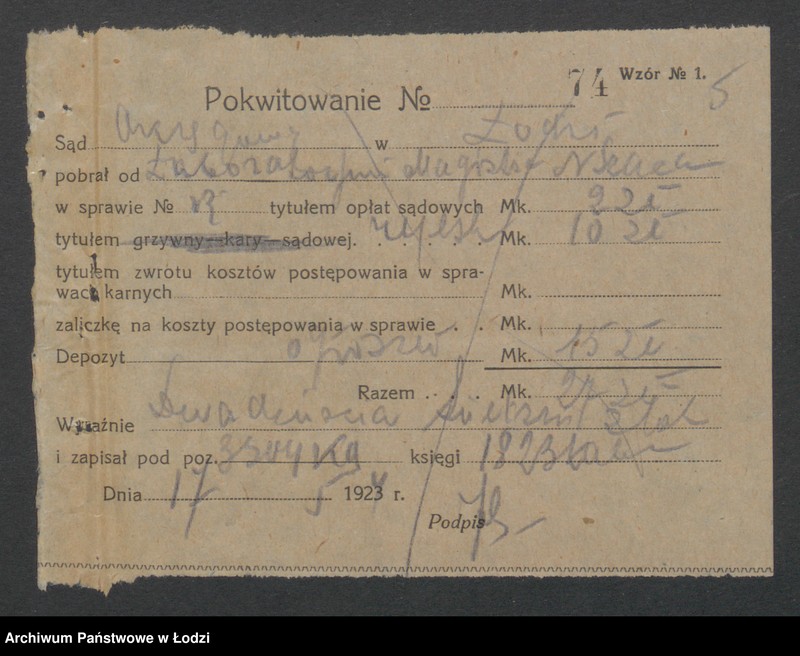 74 Wzór № 1. 5
Pokwitowanie №
Sąd Okręgowy w Łodzi
pobrał od Laboratorjum Magistra
w sprawie № tytułem opłat sądowych Mk. 2 zł
tytułem grzywny—kary—sądowej. rejestr Mk. 10 zł
tytułem zwrotu kosztów postępowania w spra-
wach karnych Mk.
zaliczkę na koszty postępowania w sprawie . . Mk.
Depozyt ogłoszeń Mk. 15 zł
Razem . . . Mk. 27 zł
Wyraźnie Dwadzieścia siedem złot
i zapisał pod poz. księgi
Dnia 17 1923 r.
Podpis
Archiwum Państwowe w Łodzi